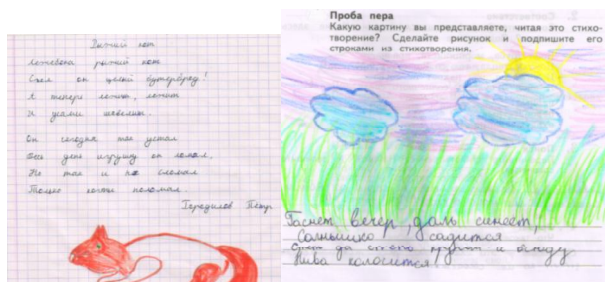 Рыжий кот
лежебока рыжий кот
Съел он целый бутерброд!
А теперь лежит, лежит
И усами шевелит.
Он сегодня так устал
Весь день игрушку он ломал,
Не так и не сломал
Только когти поломал.
Петр
Проба пера
Какую картину вы представляете, читая это стихо-
творение? Сделайте рисунок и подпишите его
строками из стихотворения.
Гаснет вечер, даль синеет,
Солнышко садится
Степь да степь кругом и всюду
Нива колосится